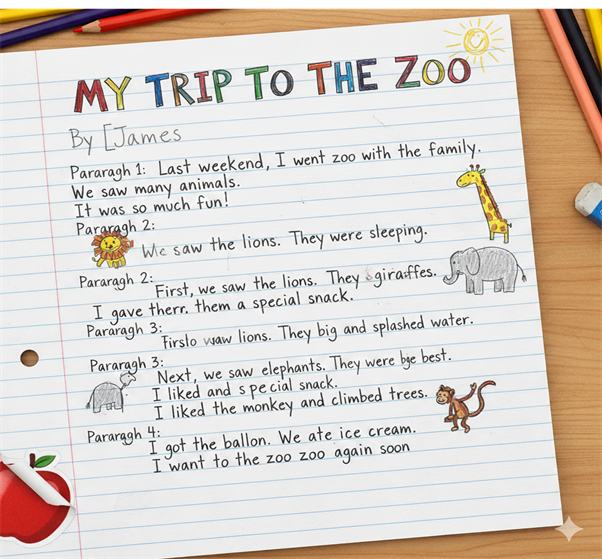 MY TRIP TO THE ZOO
By [James
Pararagh 1: Last weekend, I went zoo with the family.
We saw many animals.
It was so much fun!
Pararagh 2:
We saw the lions. They were sleeping.
Pararagh 2:
First, we saw the lions. They giraffes.
I gave therr. them a special snack.
Pararagh 3:
lions. They big and splashed water.
Pararagh 3:
Next, we saw elephants. They were best.
I liked and special snack.
I liked the monkey and climbed trees.
Pararagh 4:
I got the ballon. We ate ice cream.
I want to the zoo zoo again soon